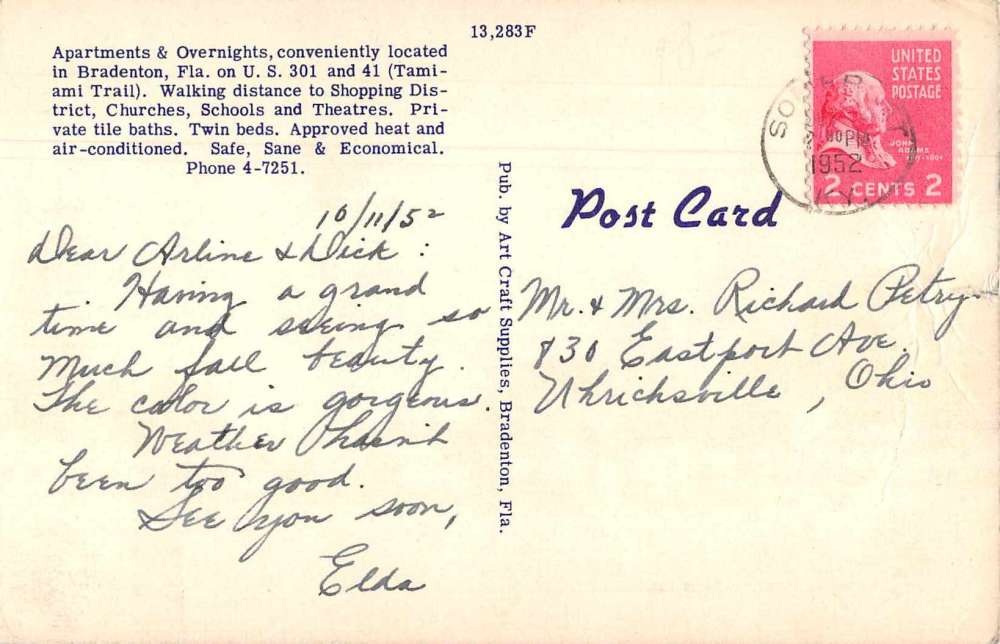 13,283F
Apartments & Overnights, conveniently located
in Bradenton, Fla. on U. S. 301 and 41 (Tami-
ami Trail). Walking distance to Shopping Dis-
trict, Churches, Schools and Theatres. Pri-
vate tile baths. Twin beds. Approved heat and
air-conditioned. Safe, Sane & Economical.
Phone 4-7251.
10/11/52
Dear Arline & Dick:
Having a grand
time and seeing so
much fall beauty.
The color is gorgeous.
Weather hasn't
been too good.
See you soon,
Elda
Pub. by Art Craft Supplies, Bradenton, Fla.
UNITED
STATES
POSTAGE
JOHN
ADAMS
2 CENTS 2
PM
1952
KY.
Post Card
Mr. & Mrs. Richard Petry
830 Eastport Ave.
Uhrichsville, Ohio